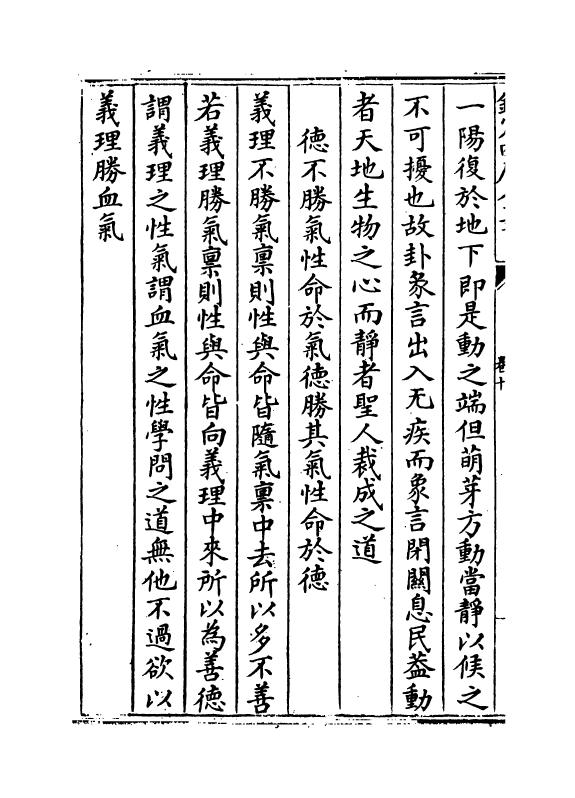 一陽復於地下即是動之端但萌芽方動當靜以候之
不可擾也故卦彖言出入无疾而象言閉關息民葢動
者天地生物之心而靜者聖人裁成之道
德不勝氣性命於氣德勝其氣性命於德
義理不勝氣稟則性與命皆隨氣稟中去所以多不善
若義理勝氣稟則性與命皆向義理中來所以為善德
謂義理之性氣謂血氣之性學問之道無他不過欲以
義理勝血氣